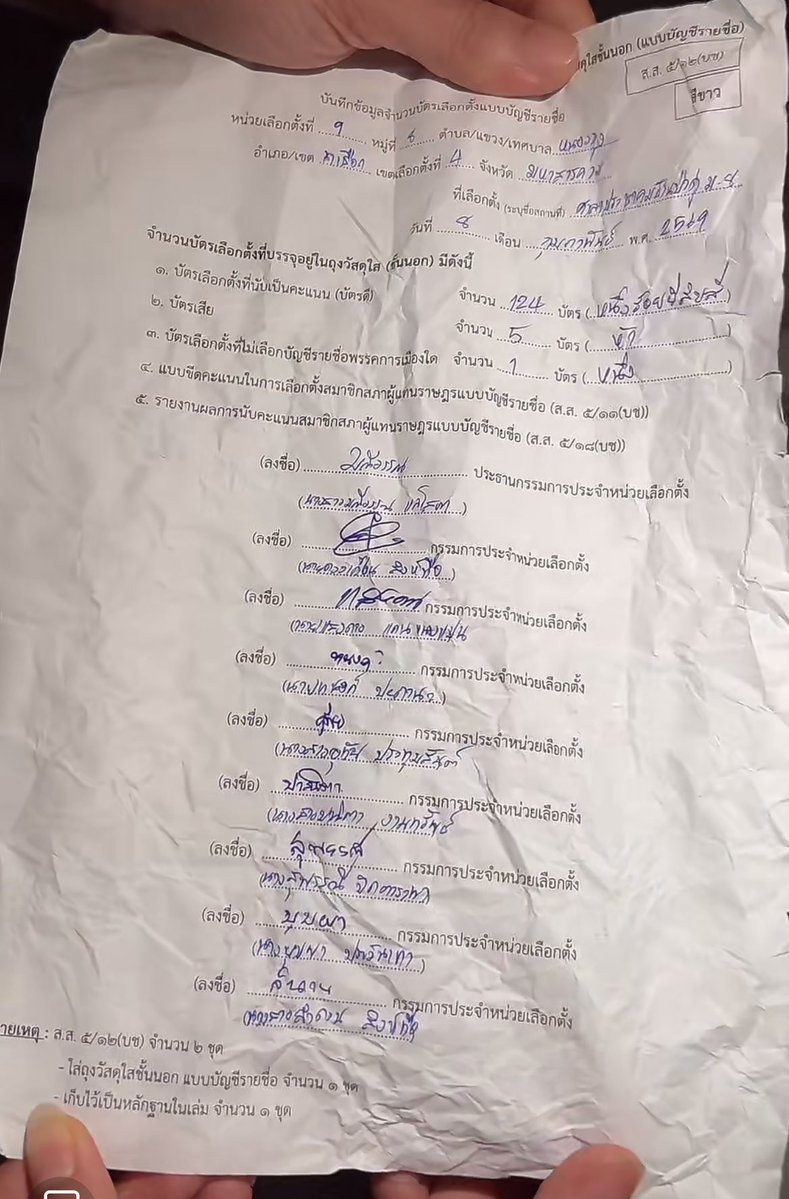 วัสดุใสชั้นนอก (แบบบัญชีรายชื่อ)
ส.ส. ๕/๑๒(บช)
สีขาว
บันทึกข้อมูลจำนวนบัตรเลือกตั้งแบบบัญชีรายชื่อ
หน่วยเลือกตั้งที่ 9 หมู่ที่ 8 ตำบล/แขวง/เทศบาล
อำเภอ/เขต นาเชือก เขตเลือกตั้งที่ 4 จังหวัด มหาสารคาม
ที่เลือกตั้ง (ระบุชื่อสถานที่) ศาลาประชาคม
วันที่ 8 เดือน กุมภาพันธ์ พ.ศ. 2569
จำนวนบัตรเลือกตั้งที่บรรจุอยู่ในถุงวัสดุใส (ชั้นนอก) มีดังนี้
๑. บัตรเลือกตั้งที่นับเป็นคะแนน (บัตรดี) จำนวน 124 บัตร (หนึ่งร้อยยี่สิบสี่)
๒. บัตรเสีย จำนวน 5 บัตร (ห้า)
๓. บัตรเลือกตั้งที่ไม่เลือกบัญชีรายชื่อพรรคการเมืองใด จำนวน 1 บัตร (หนึ่ง)
๔. แบบขีดคะแนนในการเลือกตั้งสมาชิกสภาผู้แทนราษฎรแบบบัญชีรายชื่อ (ส.ส. ๕/๑๑(บช))
๕. รายงานผลการนับคะแนนสมาชิกสภาผู้แทนราษฎรแบบบัญชีรายชื่อ (ส.ส. ๕/๑๘(บช))
(ลงชื่อ) ประธานกรรมการประจำหน่วยเลือกตั้ง
(นางสาว
(ลงชื่อ) กรรมการประจำหน่วยเลือกตั้ง
(ลงชื่อ) กรรมการประจำหน่วยเลือกตั้ง
(ลงชื่อ) กรรมการประจำหน่วยเลือกตั้ง
(ลงชื่อ) กรรมการประจำหน่วยเลือกตั้ง
(นางสาวอุทัย ประทุมสันต์
(ลงชื่อ) ปาณิตา กรรมการประจำหน่วยเลือกตั้ง
(นางสาวปาณิตา งามทรัพย์
(ลงชื่อ) สุพรรณี กรรมการประจำหน่วยเลือกตั้ง
(นางสุพรรณี
(ลงชื่อ) บุบผา กรรมการประจำหน่วยเลือกตั้ง
(นางบุบผา
(ลงชื่อ) กรรมการประจำหน่วยเลือกตั้ง
(นางสาว
ายเหตุ : ส.ส. ๕/๑๒(บช) จำนวน ๒ ชุด
- ใส่ถุงวัสดุใสชั้นนอก แบบบัญชีรายชื่อ จำนวน ๑ ชุด
- เก็บไว้เป็นหลักฐานในเล่ม จำนวน ๑ ชุด